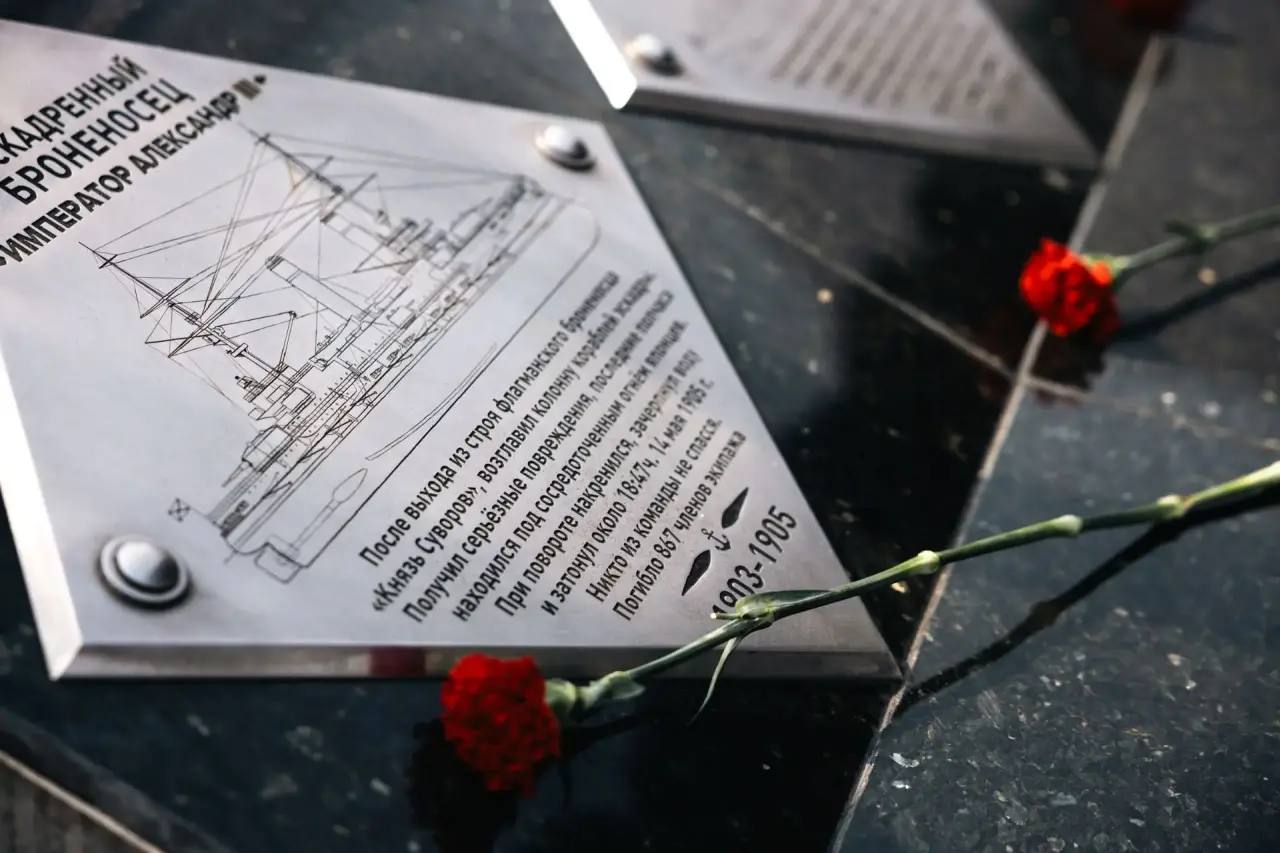 СКАДРЕННЫЙ
БРОНЕНОСЕЦ
«ИМПЕРАТОР АЛЕКСАНДР III»
После выхода из строя флагманского броненосца
«Князь Суворов», возглавил колонну кораблей эскадры.
Получил серьёзные повреждения, последние полчаса
находился под сосредоточенным огнём японцев.
При повороте накренился, зачерпнул воду
и затонул около 18:47ч, 14 мая 1905 г.
Никто из команды не спасся.
Погибло 867 членов экипажа
1903-1905